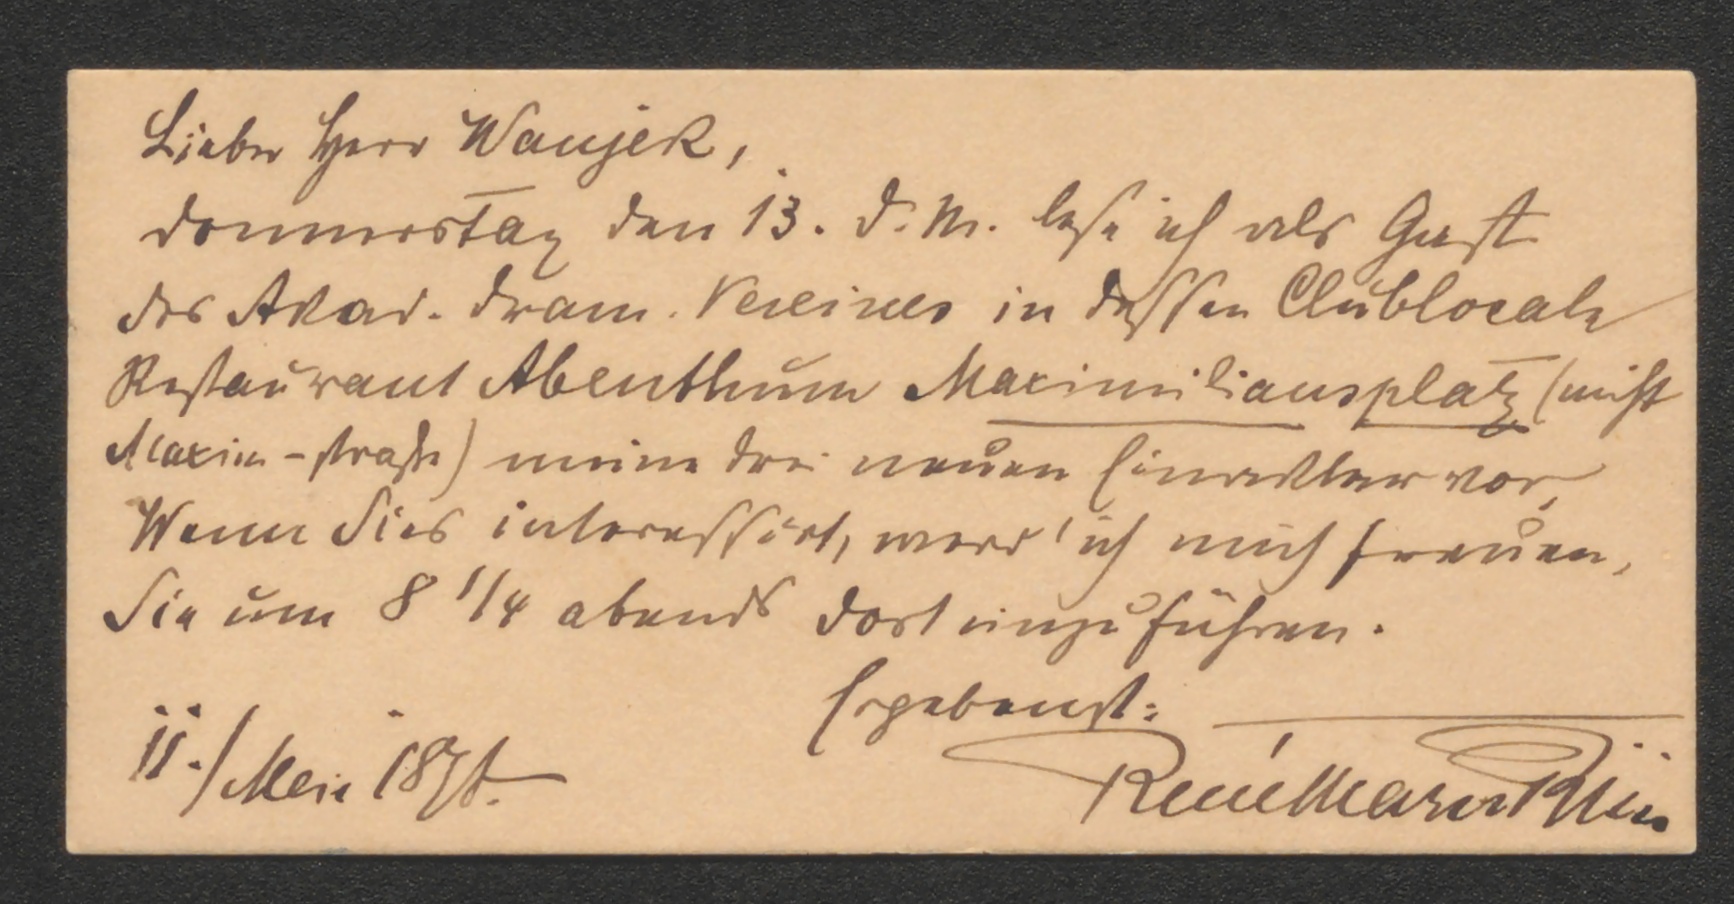 Lieber Herr Wanjek,
Donnerstag den 13. d. M. lese ich als Gast
des Akad. dram. Vereines in dessen Clublocale
Restaurant Abenthum Maximiliansplatz (nicht
Maxim-straße) meine drei neuen Einakter vor,
Wenn Sies interessirt, werd' ich mich freuen,
Sie um 8 1/4 abends dort einzuführen.
Ergebenst:
11./Mai 1897.
René Maria Rilke